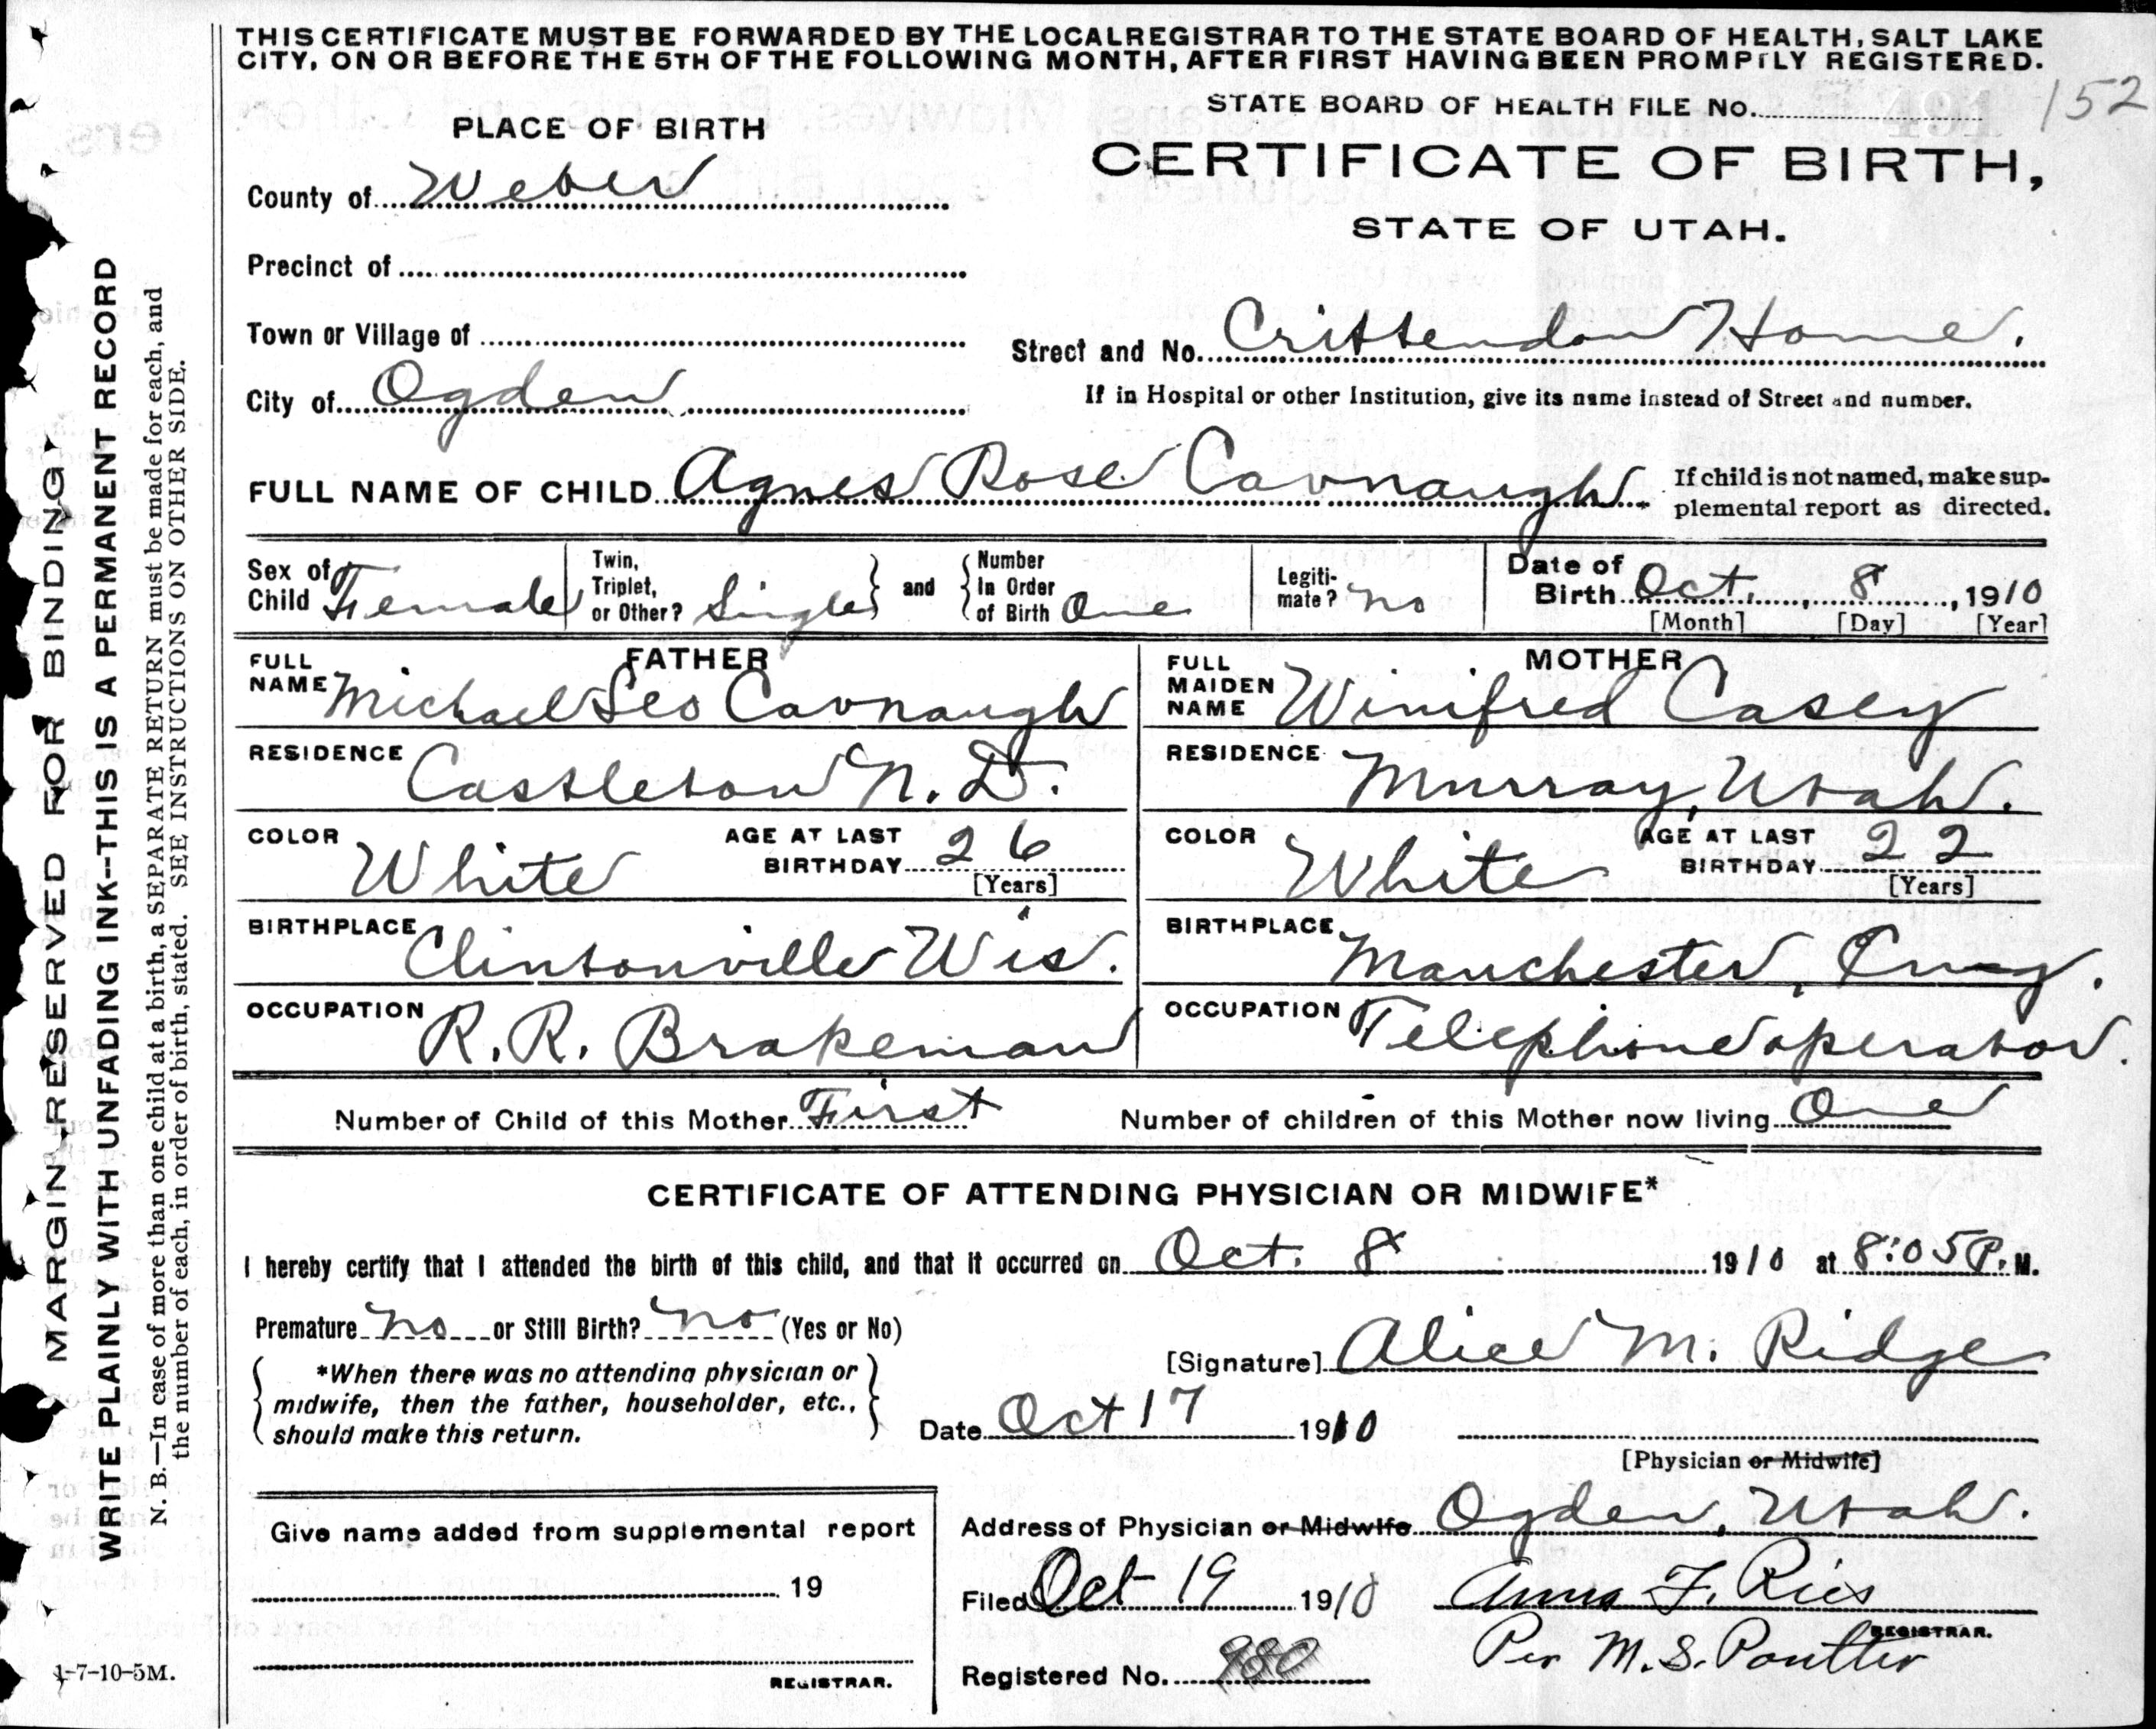 THIS CERTIFICATE MUST BE FORWARDED BY THE LOCAL REGISTRAR TO THE STATE BOARD OF HEALTH, SALT LAKE
CITY, ON OR BEFORE THE 5TH OF THE FOLLOWING MONTH, AFTER FIRST HAVING BEEN PROMPTLY REGISTERED.
152
STATE BOARD OF HEALTH FILE No.
PLACE OF BIRTH
CERTIFICATE OF BIRTH,
STATE OF UTAH.
County of Weber
Precinct of
Town or Village of
Street and No. Crittendon Home.
City of Ogden
If in Hospital or other Institution, give its name instead of Street and number.
FULL NAME OF CHILD Agnes Rose Cavnaugh. If child is not named, make sup-
plemental report as directed.
Sex of Child Female
Twin, Triplet, or Other? Single
and
Number In Order of Birth One
Legiti-mate? no
Date of Birth Oct. 8, 1910
[Month] [Day] [Year]
FATHER
FULL NAME Michael Leo Cavnaugh
RESIDENCE Castleton N. D.
COLOR White AGE AT LAST BIRTHDAY 26
[Years]
BIRTHPLACE Clintonville Wis.
OCCUPATION R. R. Brakeman
MOTHER
FULL MAIDEN NAME Winifred Casey
RESIDENCE Murray, Utah.
COLOR White AGE AT LAST BIRTHDAY 22
[Years]
BIRTHPLACE Manchester, Eng.
OCCUPATION Telephone operator.
Number of Child of this Mother First Number of children of this Mother now living One
CERTIFICATE OF ATTENDING PHYSICIAN OR MIDWIFE*
I hereby certify that I attended the birth of this child, and that it occurred on Oct. 8 1910 at 8:05 P. M.
Premature no or Still Birth? no (Yes or No)
*When there was no attending physician or
midwife, then the father, householder, etc.,
should make this return.
[Signature] Alice M. Ridge
Date Oct 17 1910
[Physician or Midwife]
Give name added from supplemental report
19
REGISTRAR.
Address of Physician or Midwife Ogden, Utah.
Filed Oct 19 1910 Anna F. Ries
REGISTRAR.
Per M. S. Poutter
Registered No. 980
MARGIN RESERVED FOR BINDING
WRITE PLAINLY WITH UNFADING INK--THIS IS A PERMANENT RECORD
N. B.—In case of more than one child at a birth, a SEPARATE RETURN must be made for each, and
the number of each, in order of birth, stated. SEE INSTRUCTIONS ON OTHER SIDE.
1-7-10-5M.